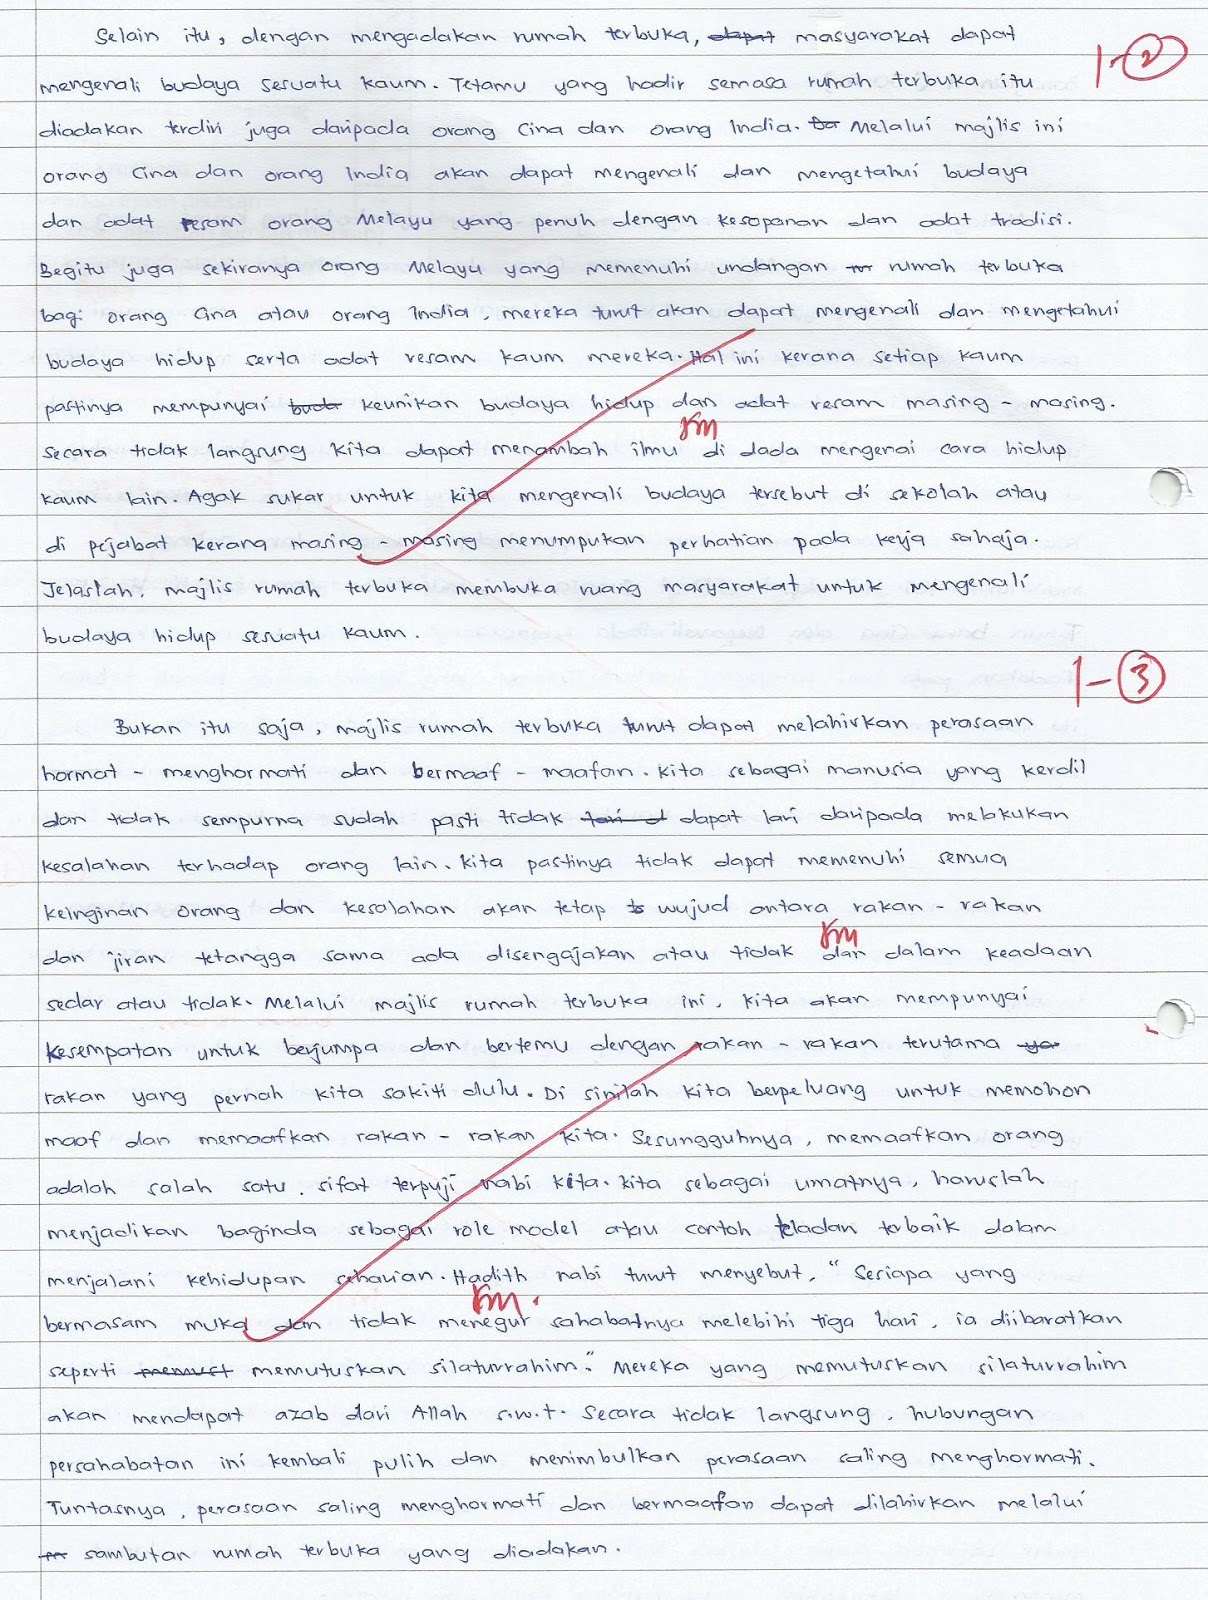 Selain itu, dengan mengadakan rumah terbuka, dapat masyarakat dapat
1-2
mengenali budaya sesuatu kaum. Tetamu yang hadir semasa rumah terbuka itu
diadakan terdiri juga daripada orang Cina dan orang India. Melalui majlis ini
orang Cina dan orang India akan dapat mengenali dan mengetahui budaya
dan adat resam orang Melayu yang penuh dengan kesopanan dan adat tradisi.
Begitu juga sekiranya orang Melayu yang memenuhi undangan rumah terbuka
bagi orang Cina atau orang India, mereka turut akan dapat mengenali dan mengetahui
budaya hidup serta adat resam kaum mereka. Hal ini kerana setiap kaum
pastinya mempunyai buda keunikan budaya hidup dan adat resam masing - masing.
km
Secara tidak langsung kita dapat menambah ilmu di dada mengenai cara hidup
kaum lain. Agak sukar untuk kita mengenali budaya tersebut di sekolah atau
di pejabat kerana masing - masing menumpukan perhatian pada kerja sahaja.
Jelaslah, majlis rumah terbuka membuka ruang masyarakat untuk mengenali
budaya hidup sesuatu kaum.
1-3
Bukan itu saja, majlis rumah terbuka turut dapat melahirkan perasaan
hormat - menghormati dan bermaaf - maafan. Kita sebagai manusia yang kerdil
dan tidak sempurna sudah pasti tidak dapat lari daripada melakukan
kesalahan terhadap orang lain. Kita pastinya tidak dapat memenuhi semua
keinginan orang dan kesalahan akan tetap wujud antara rakan - rakan
km
dan jiran tetangga sama ada disengajakan atau tidak dan dalam keadaan
sedar atau tidak. Melalui majlis rumah terbuka ini, kita akan mempunyai
kesempatan untuk berjumpa dan bertemu dengan rakan - rakan terutama ya
rakan yang pernah kita sakiti dulu. Di sinilah kita berpeluang untuk memohon
maaf dan memaafkan rakan - rakan kita. Sesungguhnya, memaafkan orang
adalah salah satu sifat terpuji nabi kita. Kita sebagai umatnya, haruslah
menjadikan baginda sebagai role model atau contoh teladan terbaik dalam
menjalani kehidupan seharian. Hadith nabi turut menyebut, "Sesiapa yang
km.
bermasam muka dan tidak menegur sahabatnya melebihi tiga hari, ia diibaratkan
seperti memust memutuskan silaturrahim." Mereka yang memutuskan silaturrahim
akan mendapat azab dari Allah s.w.t. Secara tidak langsung, hubungan
persahabatan ini kembali pulih dan menimbulkan perasaan saling menghormati.
Tuntasnya, perasaan saling menghormati dan bermaafan dapat dilahirkan melalui
sambutan rumah terbuka yang diadakan.